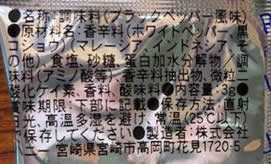 ●名称:調味料(ブラックペッパー風味)
●原材料名:香辛料(ホワイトペッパー、黒
コショウ)(マレーシア、インドネシア、そ
の他)、食塩、砂糖、蛋白加水分解物/調
味料(アミノ酸等)、香辛料抽出物、微粒二
酸化ケイ素、香料、酸味料●内容量:3g●
賞味期限:下部に記載●保存方法:直射
日光、高温多湿を避け、常温(25℃以下)
で保存してください●製造者:株式会社
二 宮崎県宮崎市高岡町花見1720-5